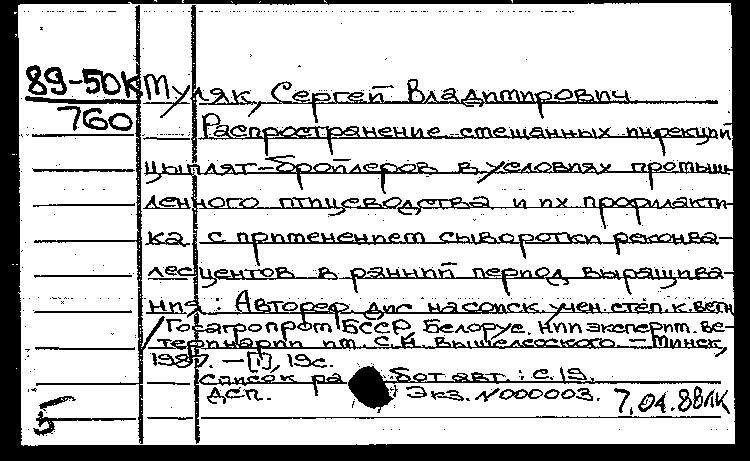 89-50К
760
Туляк, Сергей Владимирович
Распространение смешанных инфекций
цыплят-бройлеров в условиях промыш-
ленного птицеводства и их профилакти-
ка с применением сыворотки реконва-
лесцентов в ранний период выращива-
ния: Автореф дис на соиск. учен. степ. к. ветн
/ Госагропром БССР, Белорус. нии эксперим. ве-
теринарии им. С.Н. Вышелесского. – Минск,
1987. – [1], 19с.
Список работ авт.: с. 19.
ДСП. Экз. N000003. 7.04.88
5